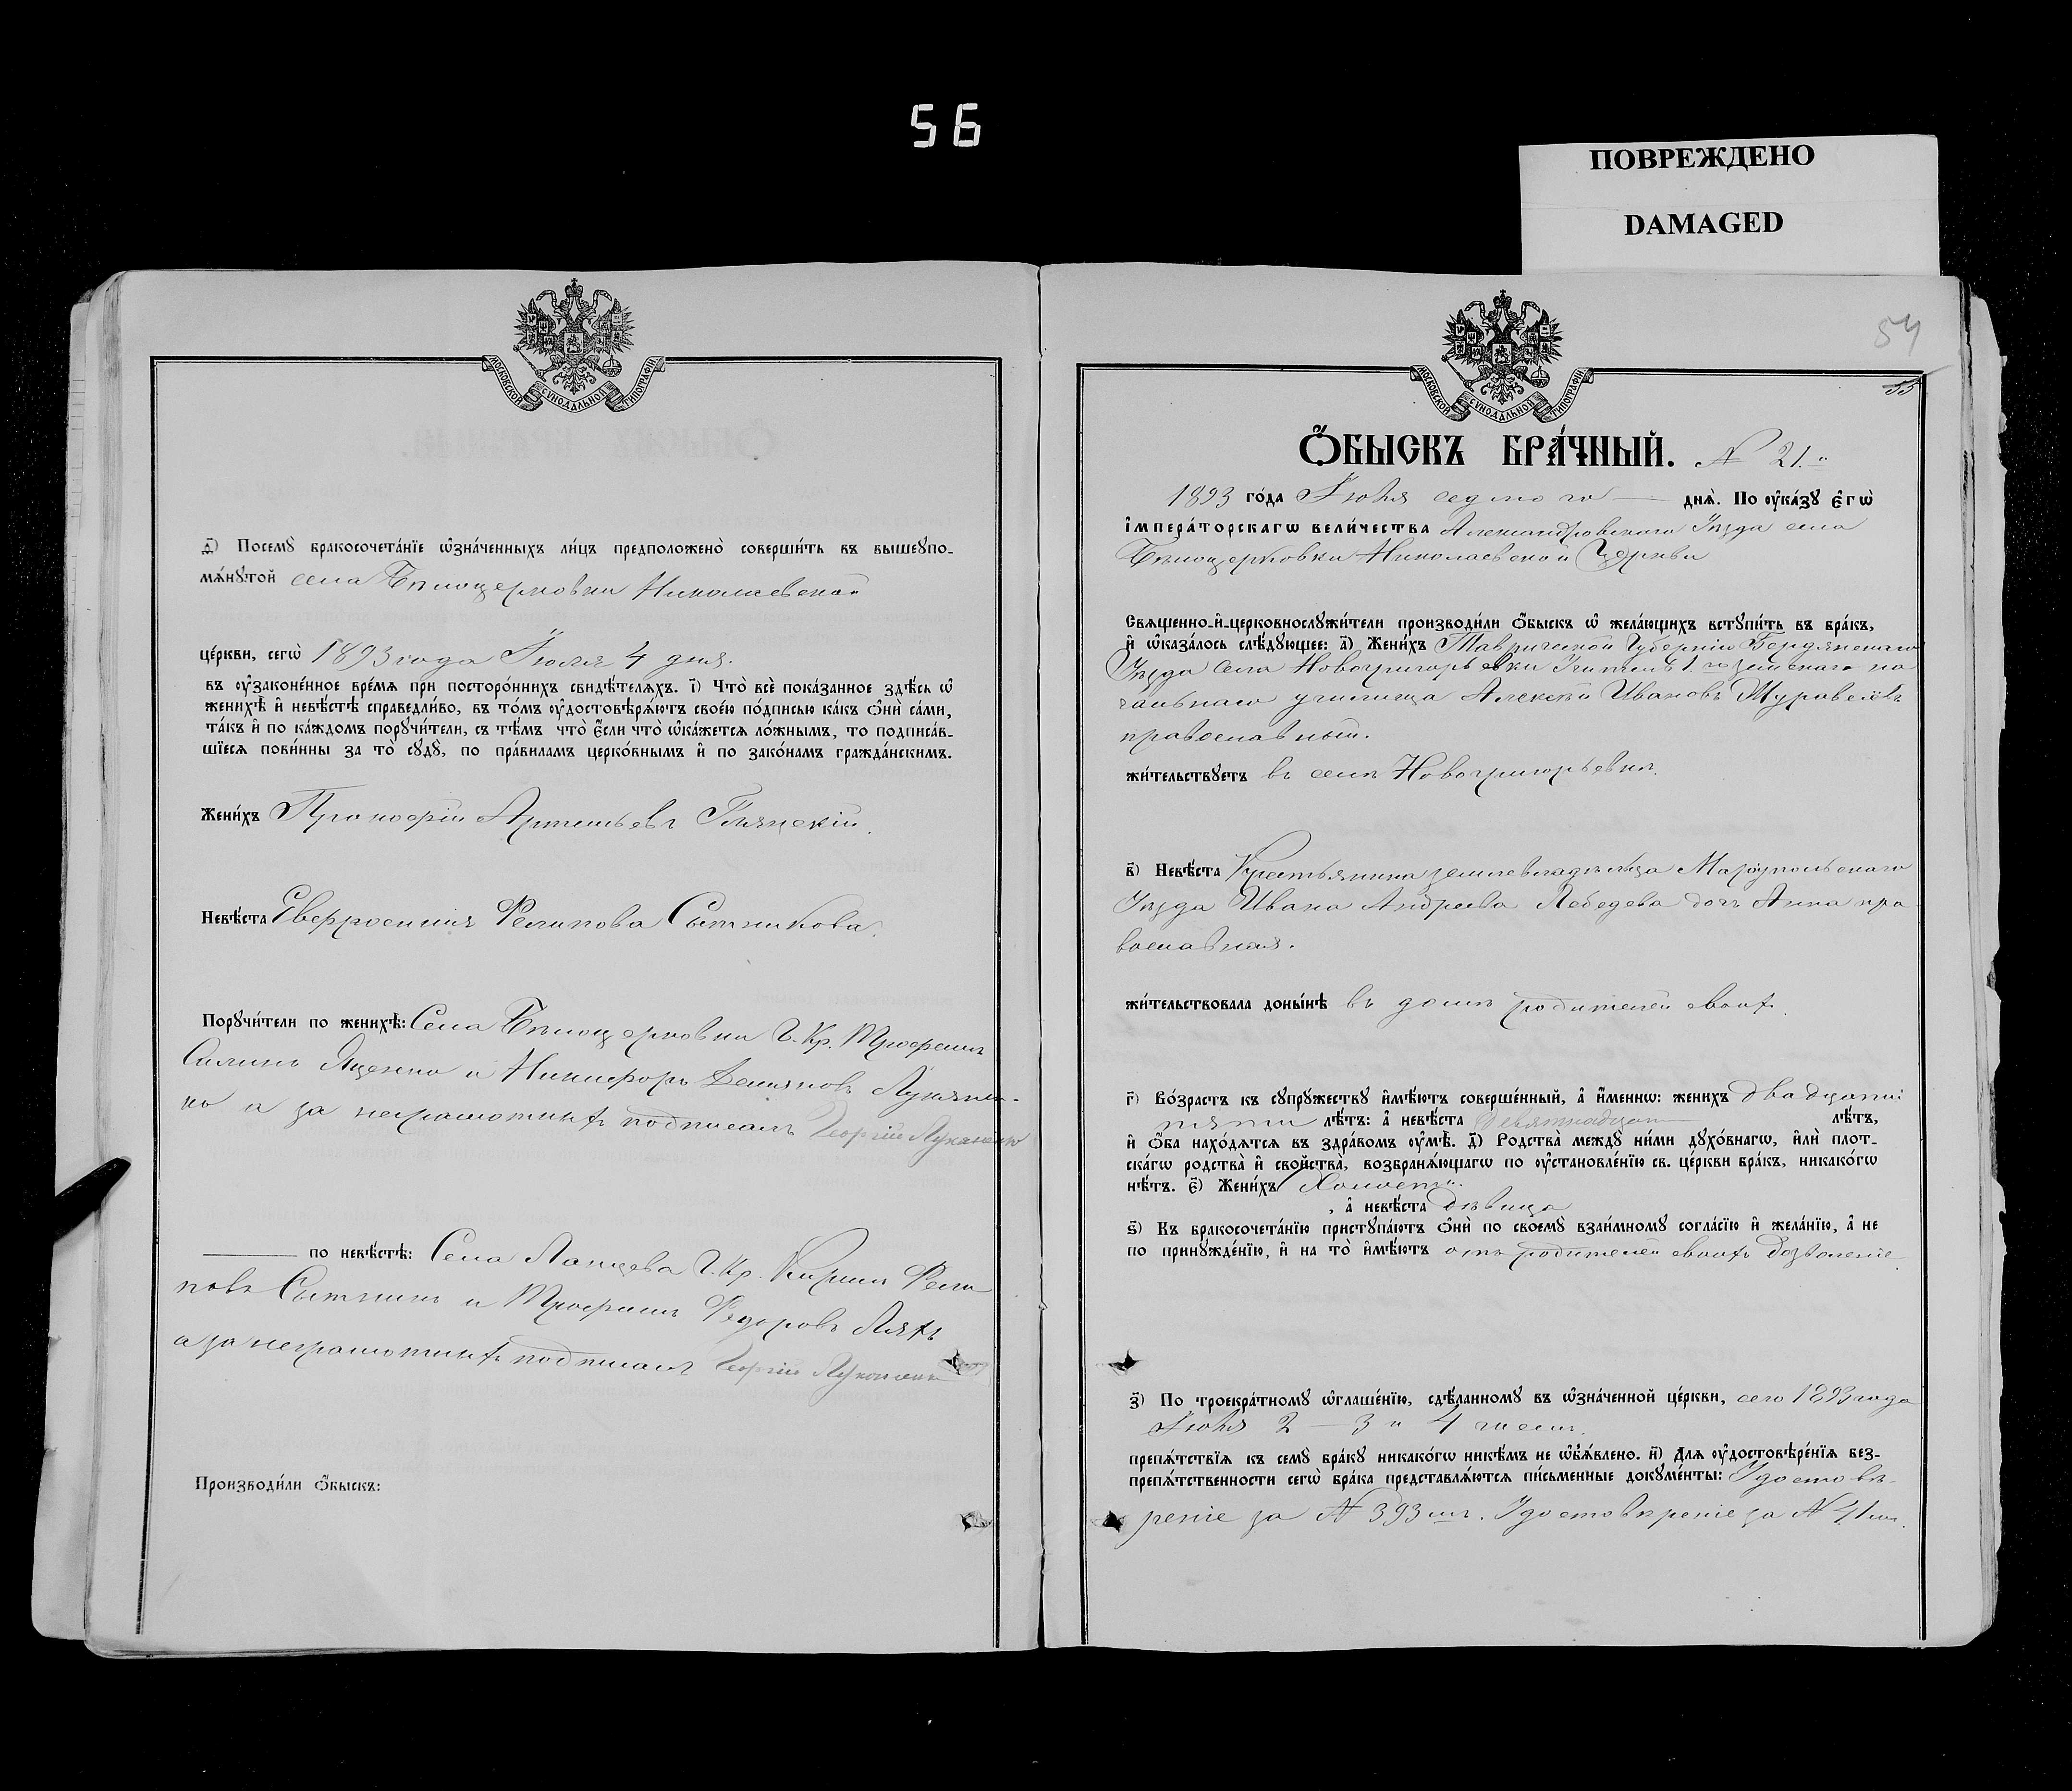 56
ПОВРЕЖДЕНО
DAMAGED
МОСКОВСКОЙ СѴНОДАЛЬНОЙ ТИПОГРАФІИ
д҃і) Посемꙋ̀ бракосочета́нїе ѡ҆зна́ченныхъ ли́цъ предположено̀ соверши́ть въ вышеꙋпо-
мѧ́нꙋтой села Бѣлоцерковки Николаевской
це́ркви, сегѡ̀ 1893 года Іюля 4 дня.
въ ᲂу҆законе́нное вре́мѧ при посторо́ннихъ свидѣ́телѧхъ. і҃) Что̀ всѐ пока́занное здѣ́сь ѡ҆
женихѣ̀ и҆ невѣ́стѣ справедли́во, въ то́мъ ᲂу҆достовѣрѧ́ютъ свое́ю по́дписью ка́къ ѻ҆нѝ са́ми,
та́къ и҆ по ка́ждомъ порꙋчи́тели, съ тѣ́мъ что̀ є҆́сли что̀ ѡ҆ка́жетсѧ ло́жнымъ, то подписа́в-
шїесѧ пови́нны за то̀ сꙋдꙋ̀, по пра́виламъ церко́внымъ и҆ по зако́намъ гражда́нскимъ.
Жени́хъ Прокофій Артемьевъ
Невѣ́ста Евфросинія Филипова Сытникова.
Порꙋчи́тели по женихѣ̀: Села Бѣлоцерковки Г. Кр. Трофимъ
Силинъ Яценко и Никифоръ Демяновъ Лукянен-
ко а за неграмотныхъ подписалъ Георгій Луканенко
по невѣ́стѣ: Села Г. Кр. Кирилъ Фили
повъ Сытникъ и Трофимъ Федоровъ Ляхъ
а за неграмотныхъ подписалъ Георгій
Производи́ли ѻ҆́быскъ:
54
55
МОСКОВСКОЙ СѴНОДАЛЬНОЙ ТИПОГРАФІИ
Ѻ҆́БЫСКЪ БРА́ЧНЫЙ. № 21.й
1893 го́да Іюля седмого днѧ̀. По ᲂу҆ка́зꙋ є҆гѡ̀
і҆мпера́торскагѡ вели́чества Александровскаго Уѣзда села
Бѣлоцерковки Николаевской Церкви
Свѧщенно-и҆-церковнослꙋжи́тели производи́ли ѻ҆́быскъ ѡ҆ жела́ющихъ встꙋпи́ть въ бра́къ,
и҆ ѡ҆каза́лось слѣ́дꙋющее: а҃) Жени́хъ Таврической Губерніи Бердянскаго
Уѣзда села Новогригорьевки Учитель 1.го земскаго на
чальнаго училища Алексѣй Ивановъ Журавель
православный.
жи́тельствꙋетъ въ селѣ Новогригорьевкѣ.
в҃) Невѣ́ста Крестьянина землевладѣльца Маріупольскаго
Уѣзда Ивана Андреева Лебедева дочь Анна пра
вославная.
жи́тельствовала доны́нѣ въ домѣ родителей своихъ.
г҃) Во́зрастъ къ сꙋпрꙋ́жествꙋ и҆мѣ́ютъ соверше́нный, а҆ и҆́меннѡ: женихъ двадцати
пяти лѣ́тъ: а҆ невѣ́ста девятнадцати лѣ́тъ,
и҆ ѻ҆́ба нахо́дѧтсѧ въ здра́вомъ ᲂу҆мѣ̀. д҃) Родства̀ междꙋ̀ ни́ми дꙋхо́внагѡ, и҆лѝ плот-
ска́гѡ родства̀ и҆ свойства̀, возбранѧ́ющагѡ по ᲂу҆становле́нїю св. це́ркви бра́къ, никако́гѡ
нѣ́тъ. є҃) Жени́хъ Холостъ
, а҆ невѣ́ста дѣвица
ѕ҃) Къ бракосочета́нїю пристꙋпа́ютъ ѻ҆нѝ по своемꙋ̀ взаи́мномꙋ согла́сїю и҆ жела́нїю, а҆ не
по принꙋжде́нїю, и҆ на то̀ и҆мѣ́ютъ отъ родителей своихъ дозволеніе.
з҃) По троекра́тномꙋ ѡ҆глаше́нїю, сдѣ́ланномꙋ въ ѡ҆зна́ченной це́ркви, сего 1893 года
Іюля 2 — 3 и 4 чиселъ.
препѧ́тствїѧ къ семꙋ̀ бра́кꙋ никако́гѡ никѣ́мъ не ѡ҆б̾ѧ́влено. и҃) Длѧ ᲂу҆достовѣре́нїѧ без-
препѧ́тственности сегѡ̀ бра́ка представлѧ́ютсѧ пи́сьменные докꙋме́нты: Удостовѣ-
реніе за № 393мъ. Удостовѣреніе за № 41мъ.